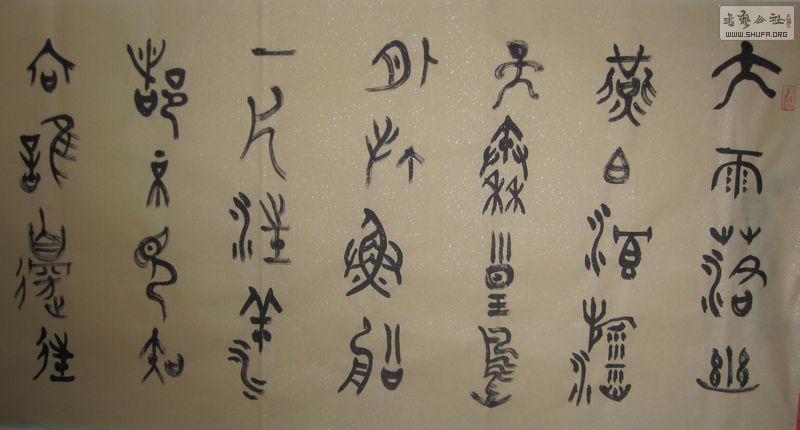 大雨落幽
燕白浪滔
天秦皇島
外打魚船
一片汪洋
都不見知
向誰邊往
書藝公社
WWW.SHUFA.ORG